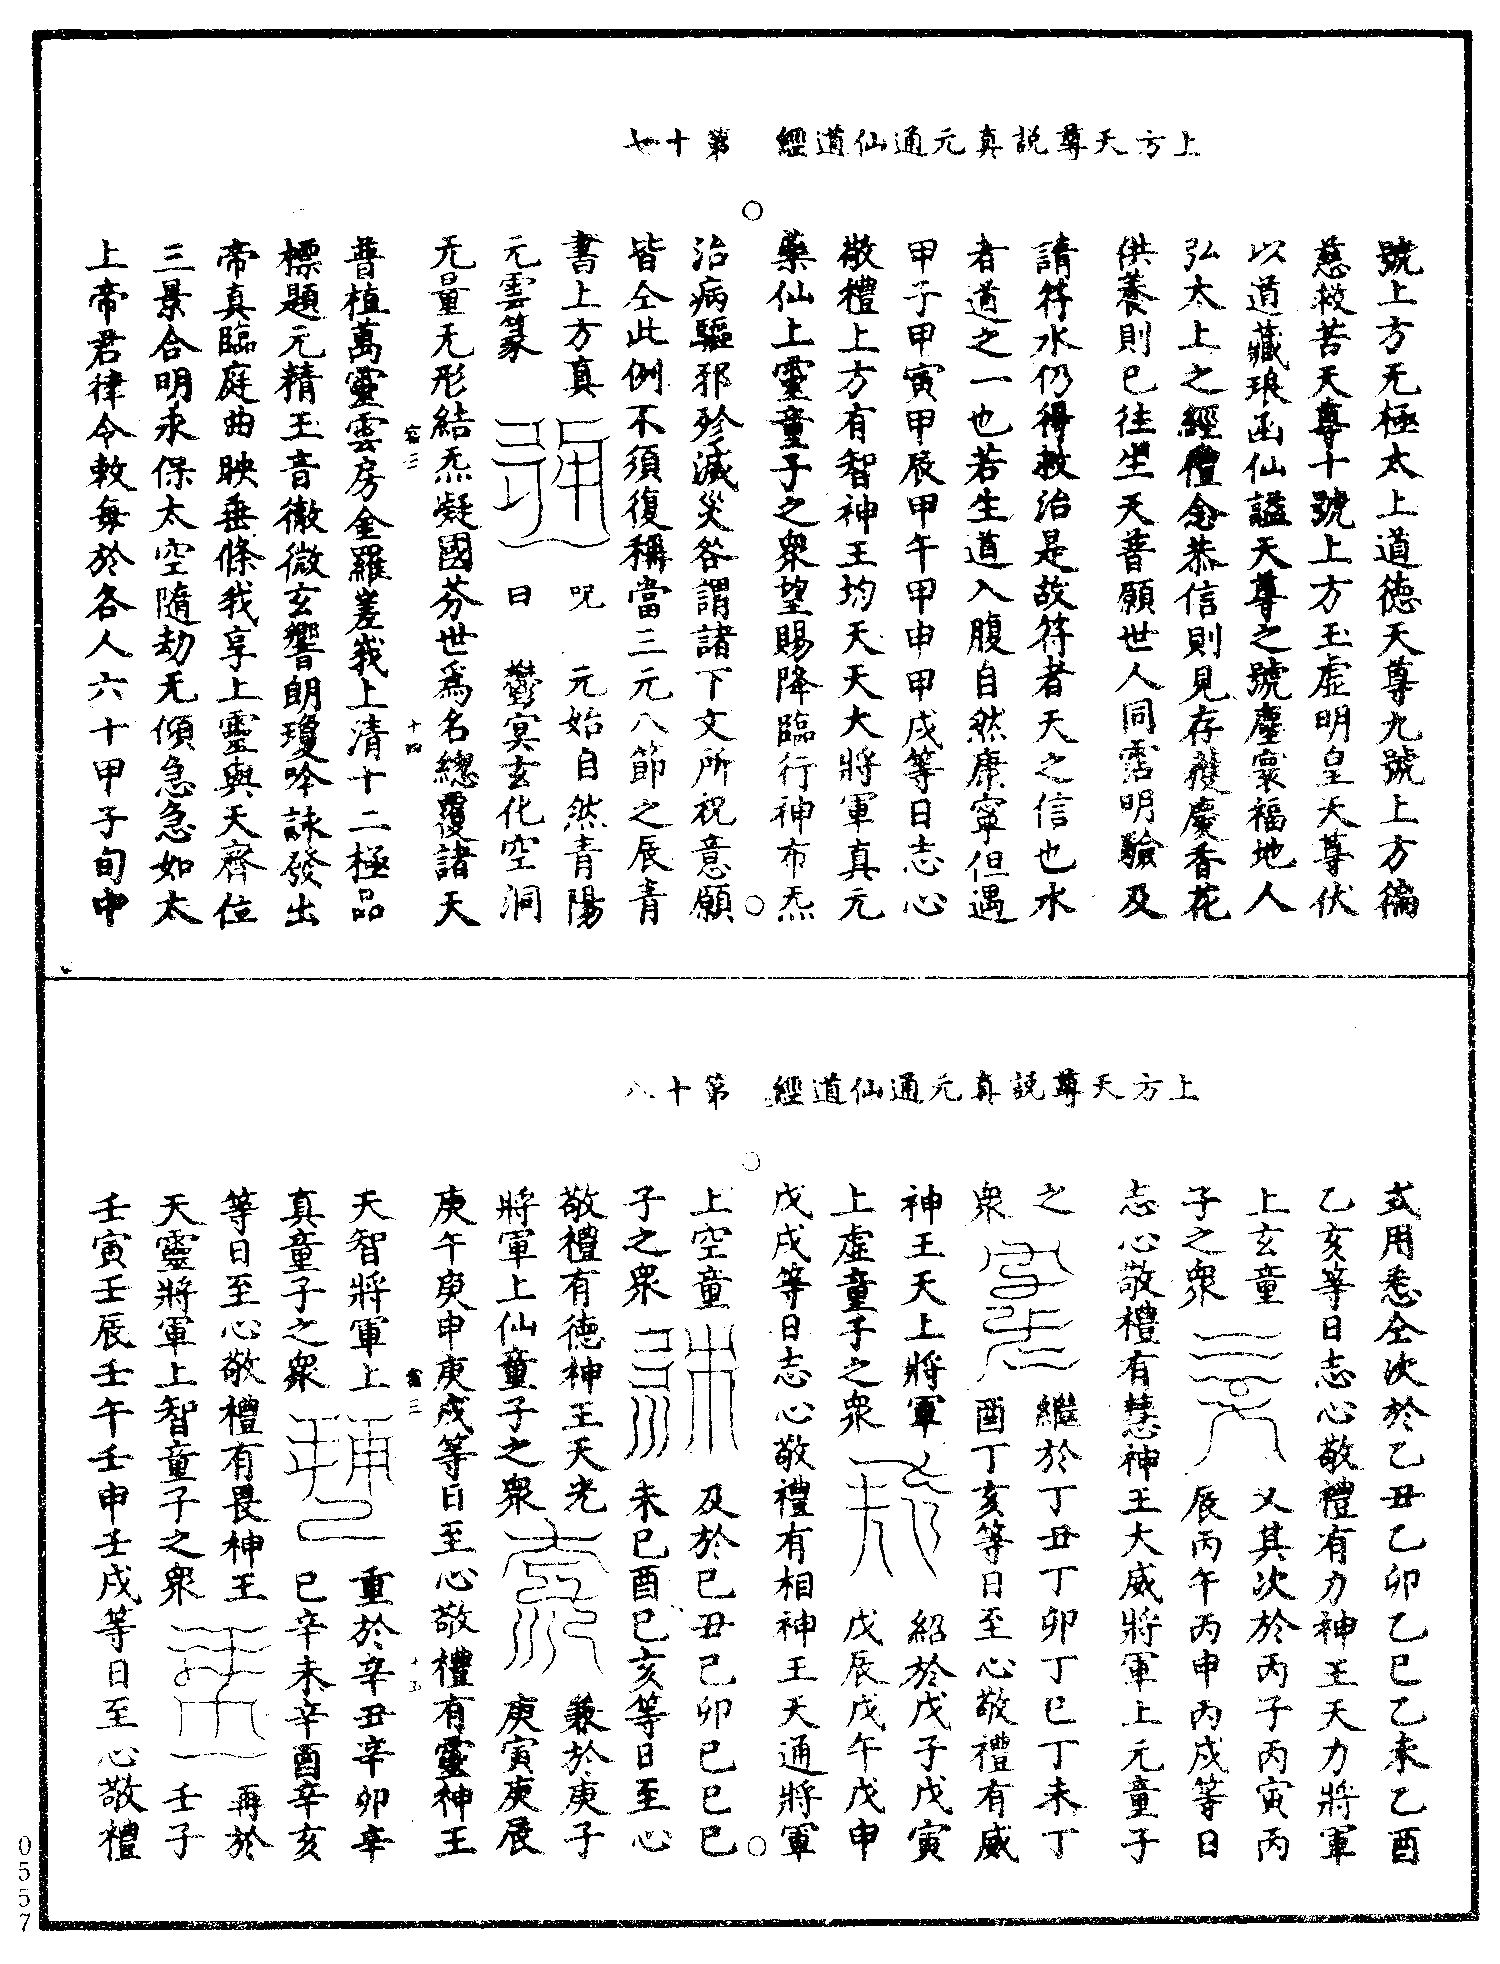 上方天尊說真元通仙道經　第十七
號上方无極太上道德天尊九號上方徧
慈救苦天尊十號上方玉虛明皇天尊伏
以道藏琅函仙謚天尊之號塵寰福地人
弘太上之經禮念恭信則見存獲慶香花
供養則已往生天普願世人同霑明驗及
請符水仍得救治是故符者天之信也水
者道之一也若生道入腹自然康寧但遇
甲子甲寅甲辰甲午甲申甲戌等日志心
敬禮上方有智神王均天天大將軍真元
藥仙上靈童子之衆望賜降臨行神布炁
治病驅邪殄滅災咎謂諸下文所祝意願
皆仝此例不須復稱當三元八節之辰青
書上方真　呪　元始自然青陽
元雲篆　曰　鬱冥玄化空洞
无量无形結炁凝國芬世爲名總覆諸天
普植萬靈雲房金羅峩我上清十二極品
標題元精玉音徹微玄響朗瓊吟詠發出
帝真臨庭曲映垂條我享上靈與天齊位
三景合明永保太空隨劫无傾急急如太
上帝君律令敕每於各人六十甲子旬中
上方天尊說真元通仙道經　第十八
式用悉仝次於乙丑乙卯乙巳乙未乙酉
乙亥等日志心敬禮有力神王天力將軍
上玄童　又其次於丙子丙寅丙
子之衆　辰丙午丙申丙戌等日
志心敬禮有慧神王大威將軍上元童子
之　繼於丁丑丁卯丁巳丁未丁
衆　酉丁亥等日至心敬禮有威
神王天上將軍　紹於戊子戊寅
上虛童子之衆　戊辰戊午戊申
戊戌等日志心敬禮有相神王天通將軍
上空童　及於己丑己卯己巳
子之衆　未己酉己亥等日至心
敬禮有德神王天光　兼於庚子
將軍上仙童子之衆　庚寅庚辰
庚午庚申庚戌等日至心敬禮有靈神王
天智將軍上　重於辛丑辛卯辛
真童子之衆　巳辛未辛酉辛亥
等日至心敬禮有畏神王　再於
天靈將軍上智童子之衆　壬子
壬寅壬辰壬午壬申壬戌等日至心敬禮
0557